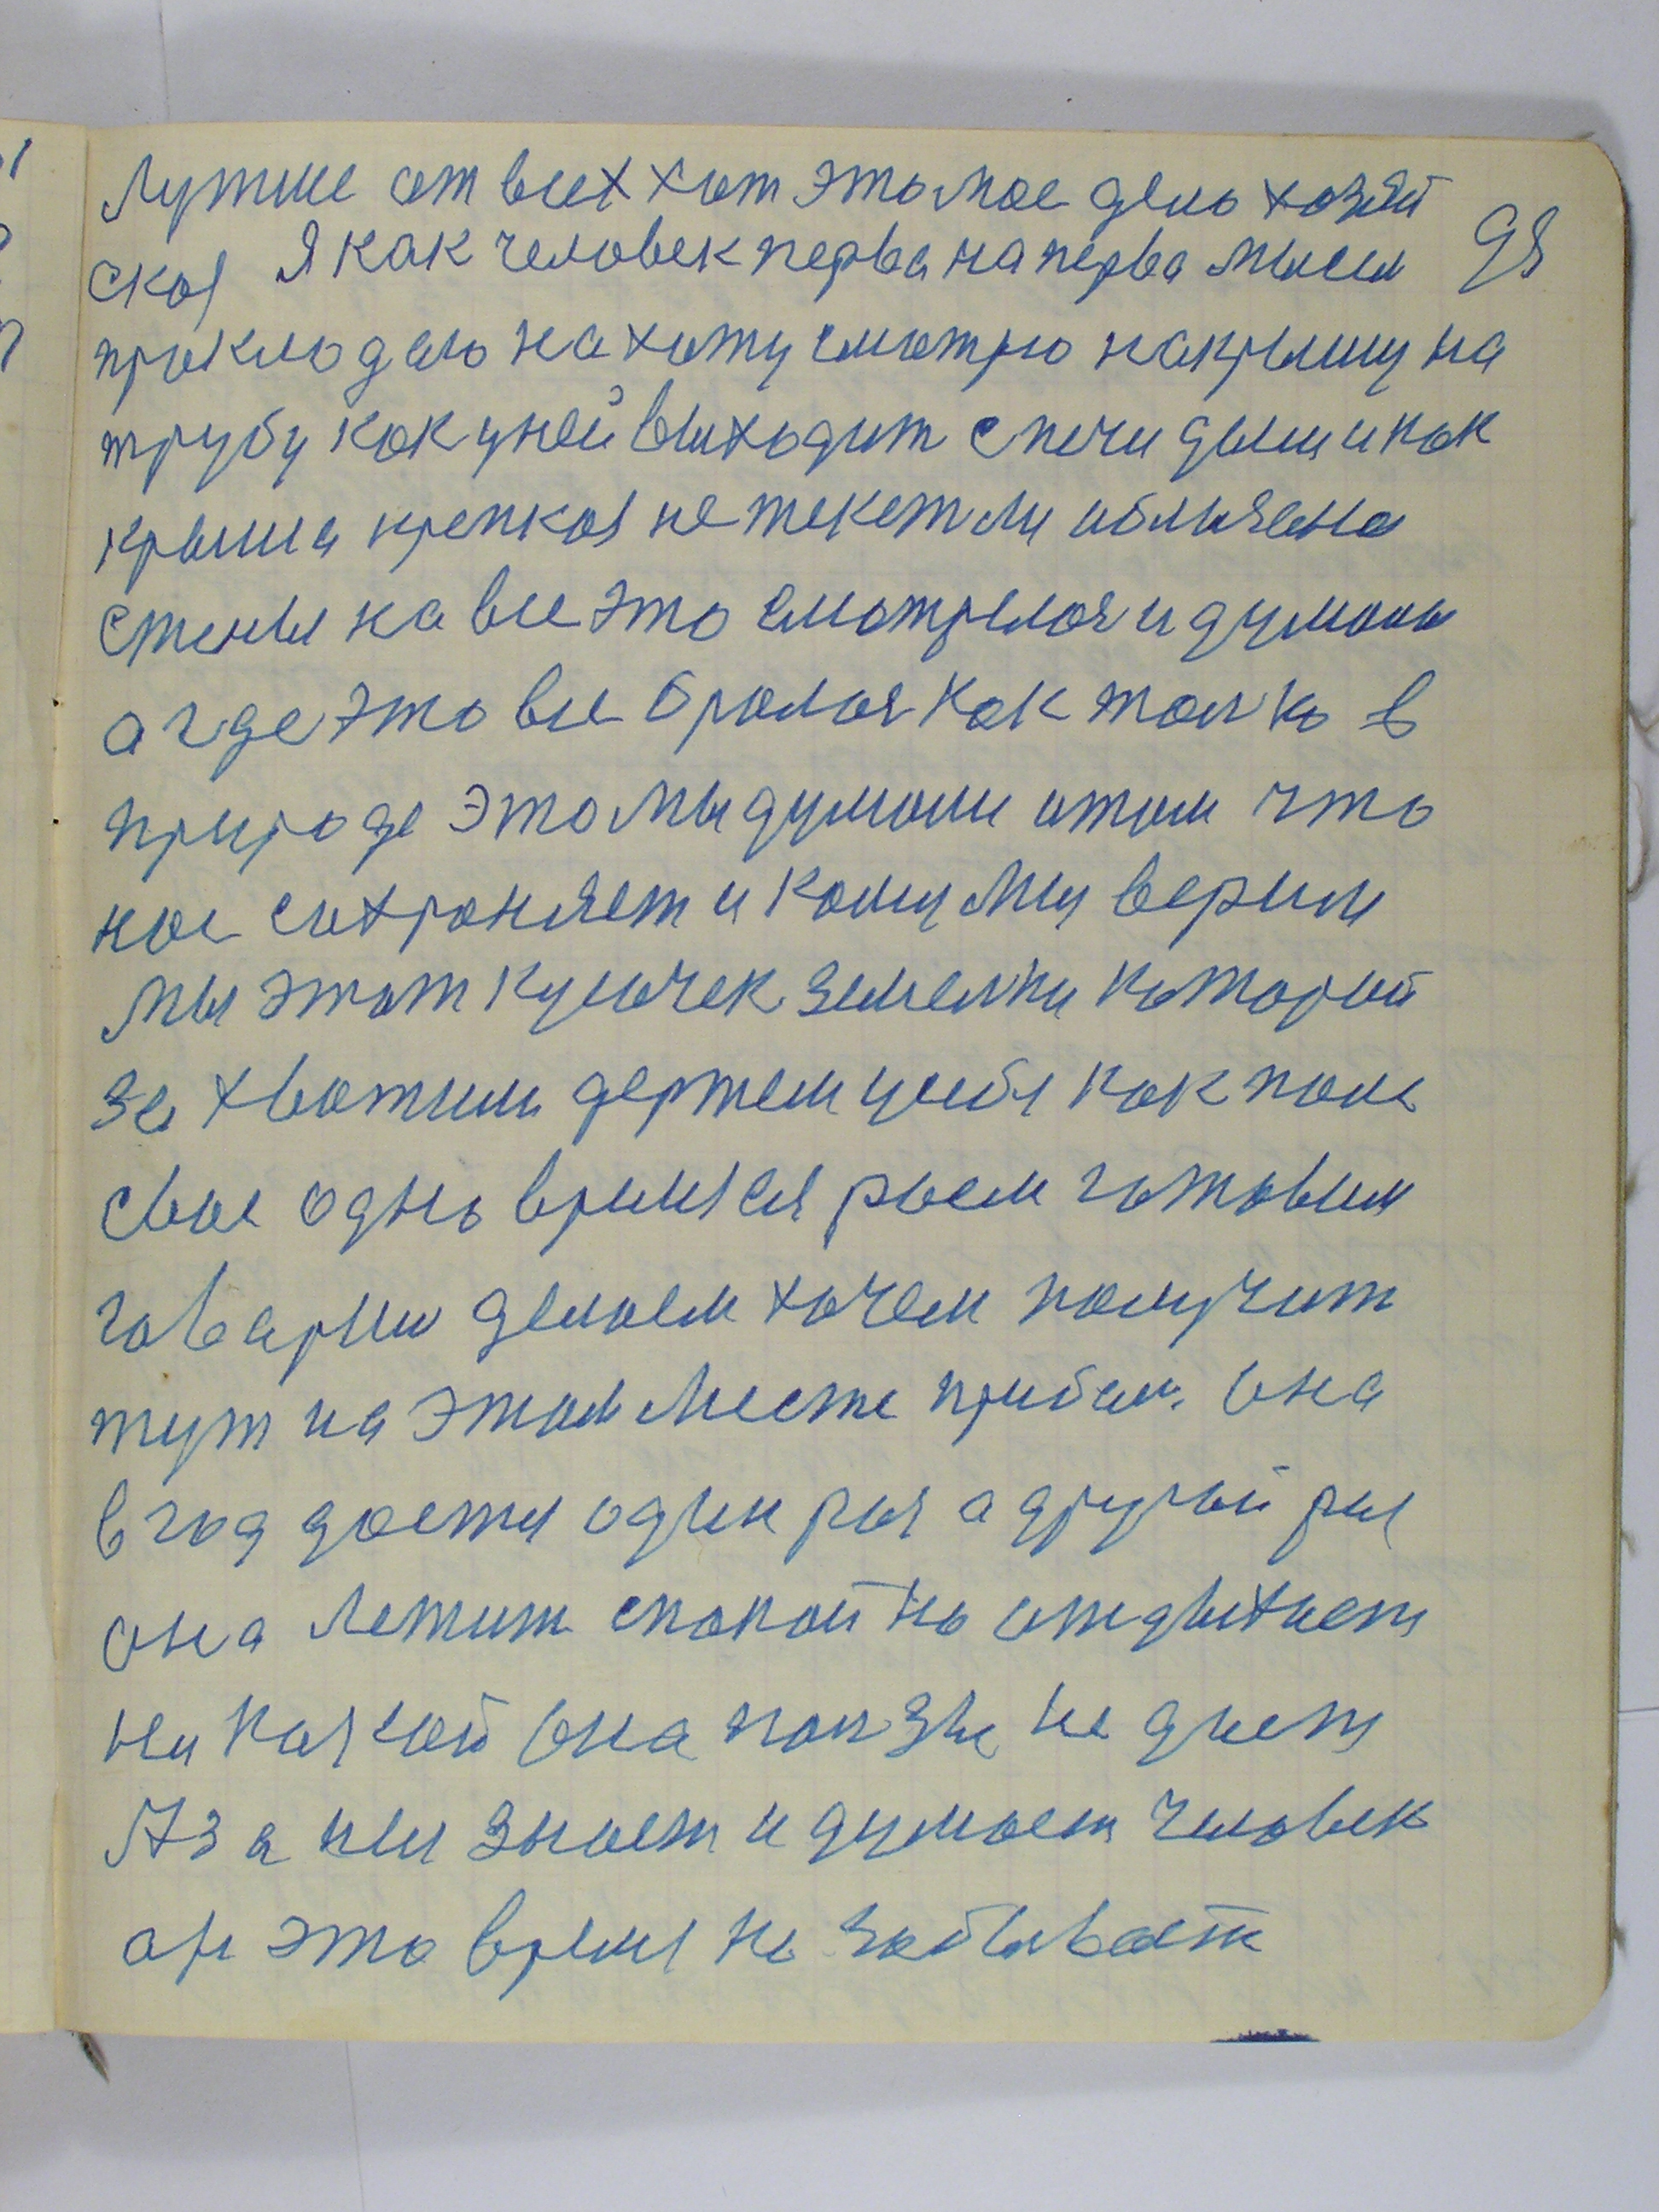 Лутше от всех хат это мое дело хозяй
ская Я как человек перва на перва мысли 98
прокладаю на хату смотрю на крышу на
трубу как у ней выходит с печи дым и как
крыша крепкая не текет ли облизяна
стены на все это смотрелся и думали
а где это все бралося как толко в
природе это мы думали о том что
нас сохраняет и кому мы верим
мы этот кусочек землели который
захватим держем у себя как поле
свое одно время сея роем готовим
говарим делаем хочем получит
тут на этом месте прибыл. Она
в год дается один раз а другой раз
она летит спокойно отдыхает
ни какой она ползы не дает
А за ней знает и думает человек
он это время не забывает